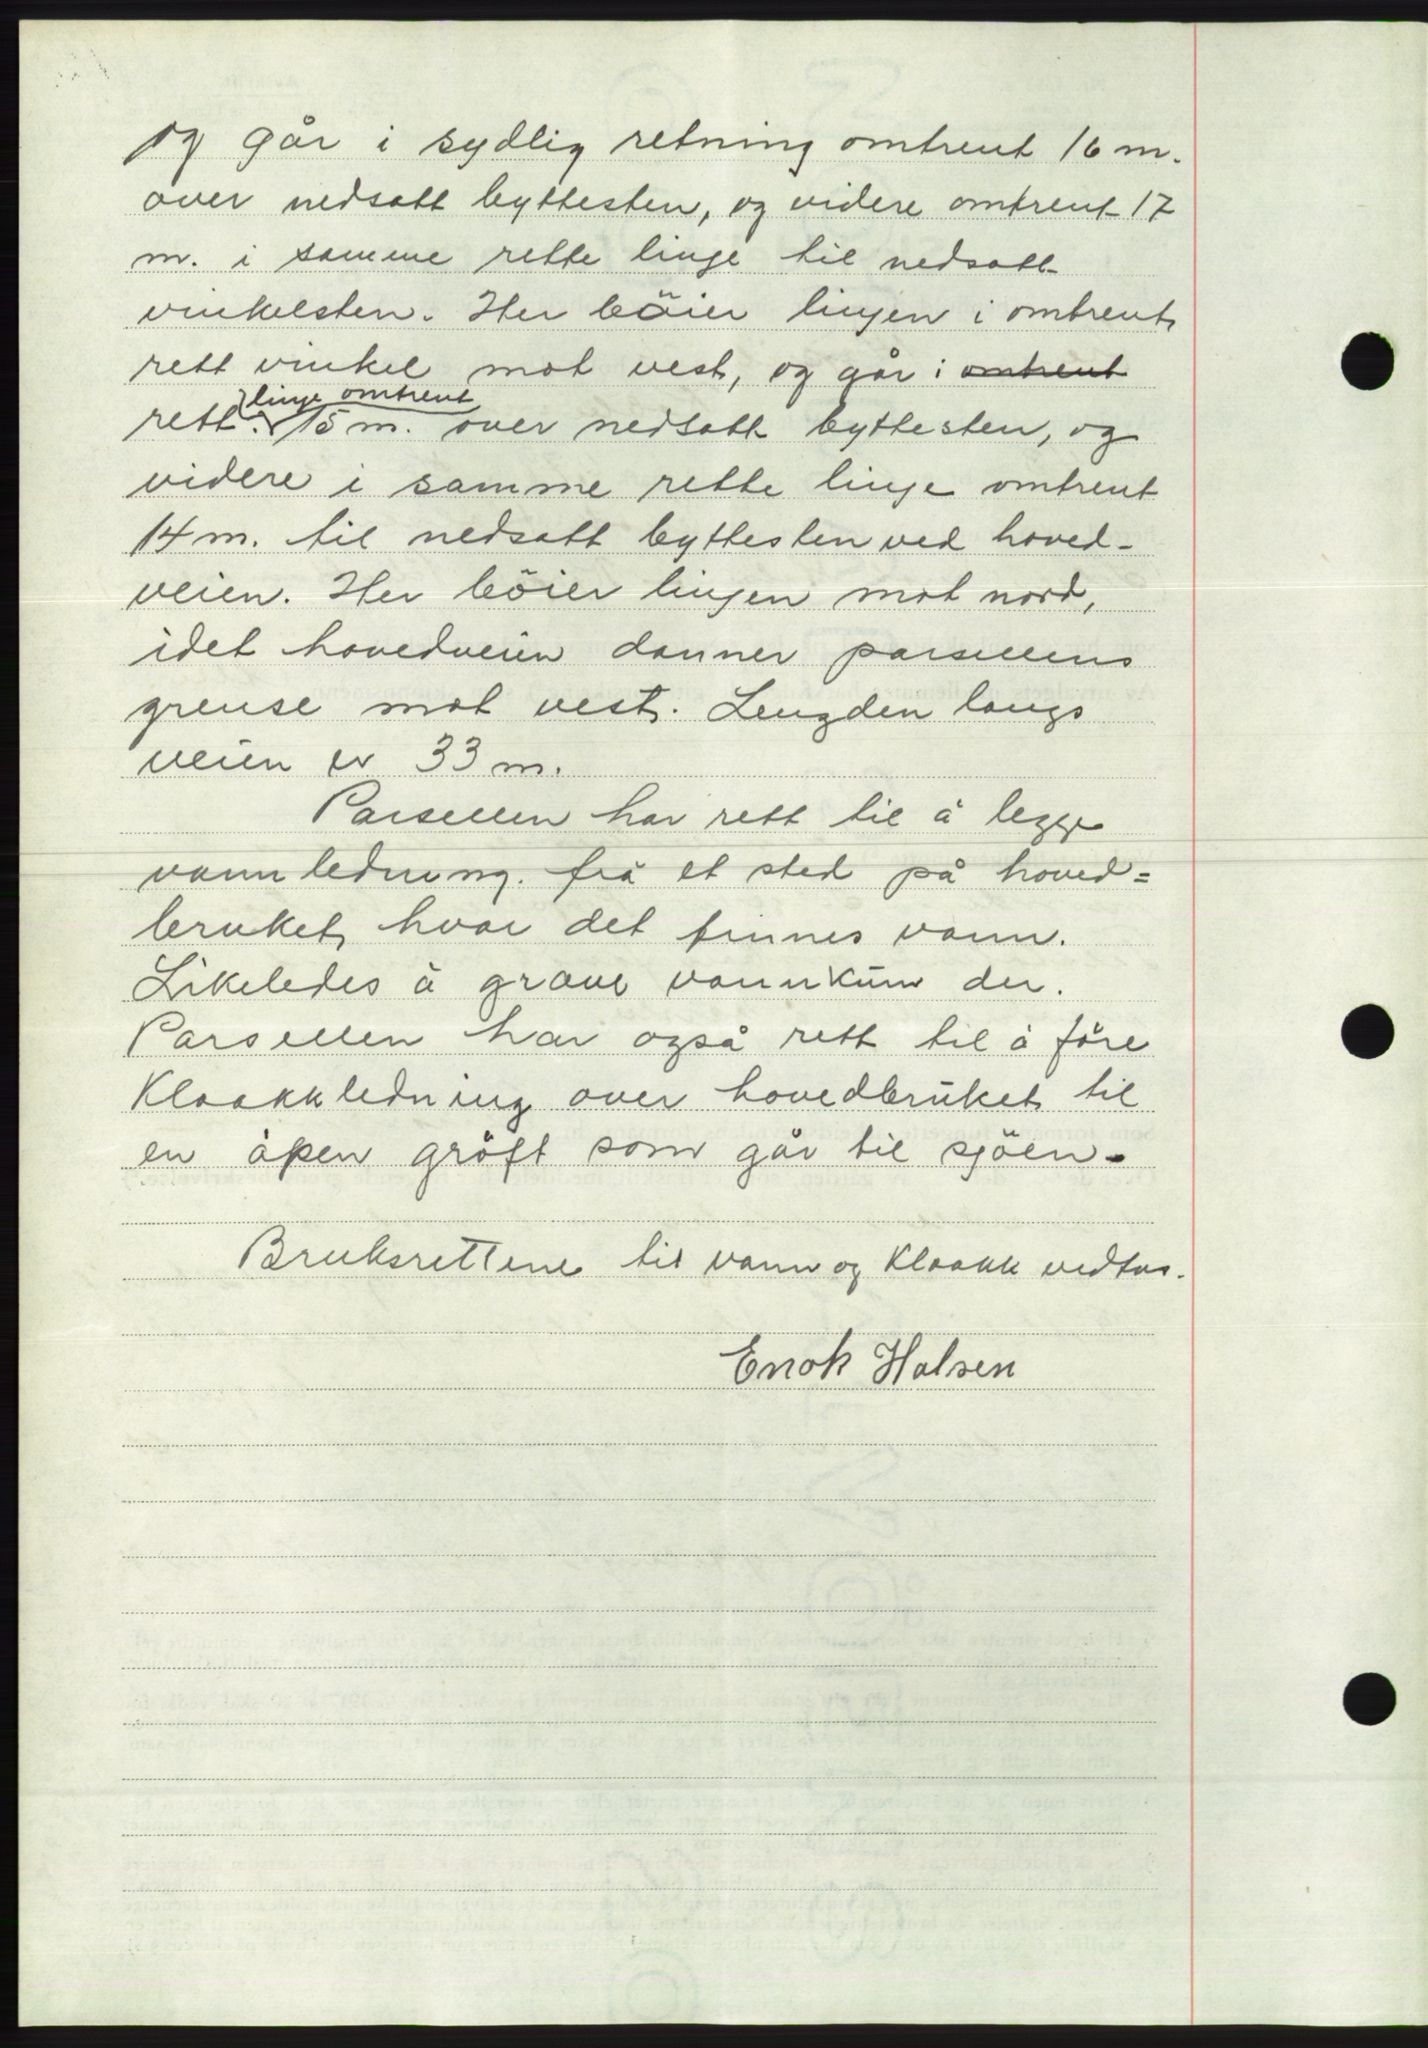 og går i sydlig retning omtrent 16 m.
over nedsatt byttesten, og videre omtrent 17
m. i samme rette linje til nedsatt
vinkelsten. Her böier linjen i omtrent
rett vinkel mot vest, og går i omtrent
linje omtrent
rett 15 m. over nedsatt byttesten, og
videre i samme rette linje omtrent
14 m. til nedsatt byttesten ved hoved-
veien. Her böier linjen mot nord,
idet hovedveien danner parsellens
grense mot vest. Lengden langs
veien er 33 m.
Parsellen har rett til å legge
vannledning. frå et sted på hoved=
bruket, hvor det finnes vann.
Likeledes å grave vannkum der.
Parsellen har også rett til å före
Kloakkledning over hovedbruket til
en åpen gröft som går til sjöen.
Bruksrettene til vann og Kloakk vedtas.
Enok Halsen